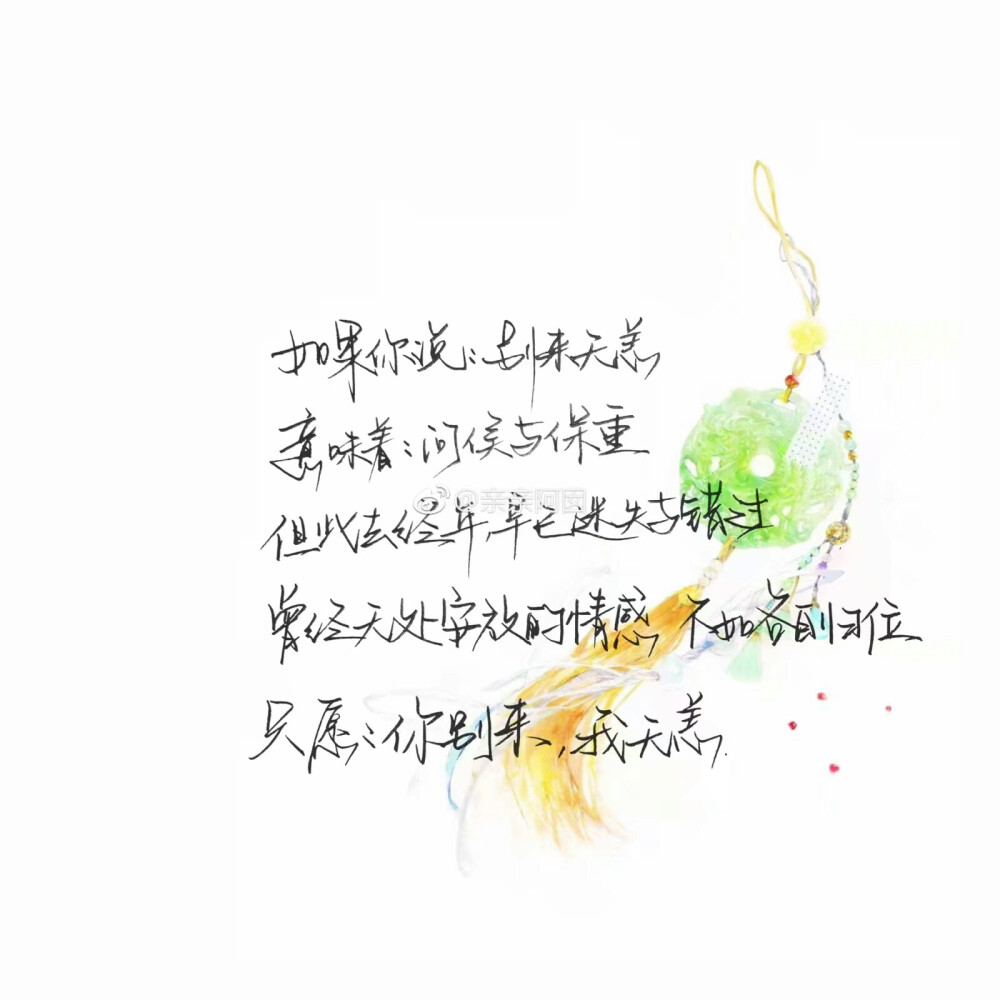 如果你说：别来无恙
意味着：问候与保重
@亲亲阿囡
但此去经年，早已迷失与错过
曾经无处安放的情感，不如各自归位
只愿：你别来，我无恙.